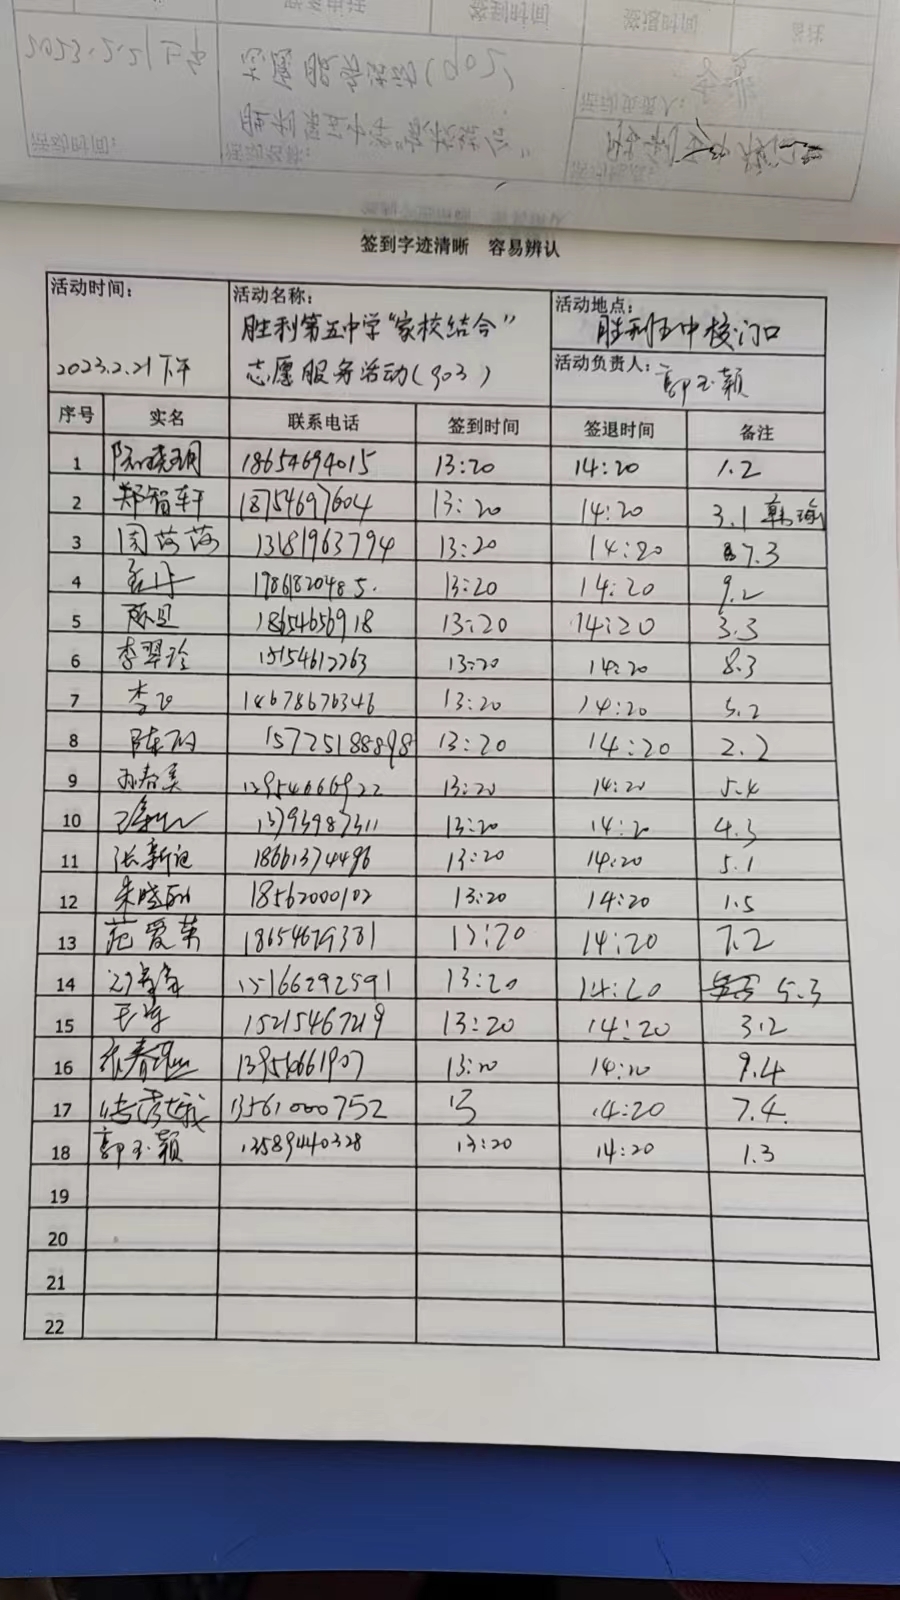 签到字迹清晰 容易辨认
活动时间: 活动名称: 活动地点:
胜利第五中学"家校结合" 胜利五中校门口
2023.2.21下午 志愿服务活动(903) 活动负责人: 郭玉颖
序号 实名 联系电话 签到时间 签退时间 备注
1 18654694015 13:20 14:20 1.2
2 郑智轩 18754697604 13:20 14:20 3.1 韩瑜
3 周茵茵 13181963794 13:20 14:20 7.3
4 孟丹 19861820485. 13:20 14:20 9.2
5 陈昆 18654656918 13:20 14:20 3.3
6 李翠玲 15154612263 13:20 14:20 8.3
7 李 14678676346 13:20 14:20 5.2
8 陈 15725188898 13:20 14:20 2.2
9 孙春美 13954666922 13:20 14:20 5.4
10 13793987311 13:20 14:20 4.3
11 张新 18661374496 13:20 14:20 5.1
12 朱晓 18562000102 13:20 14:20 1.5
13 范爱荣 18654679381 13:20 14:20 7.2
14 15166292591 13:20 14:20 5.3
15 15215467219 13:20 14:20 3.2
16 张春 13954661907 13:20 14:20 9.4
17 13561000752 14:20 7.4.
18 郭玉颖 13589440328 13:20 14:20 1.3
19
20
21
22